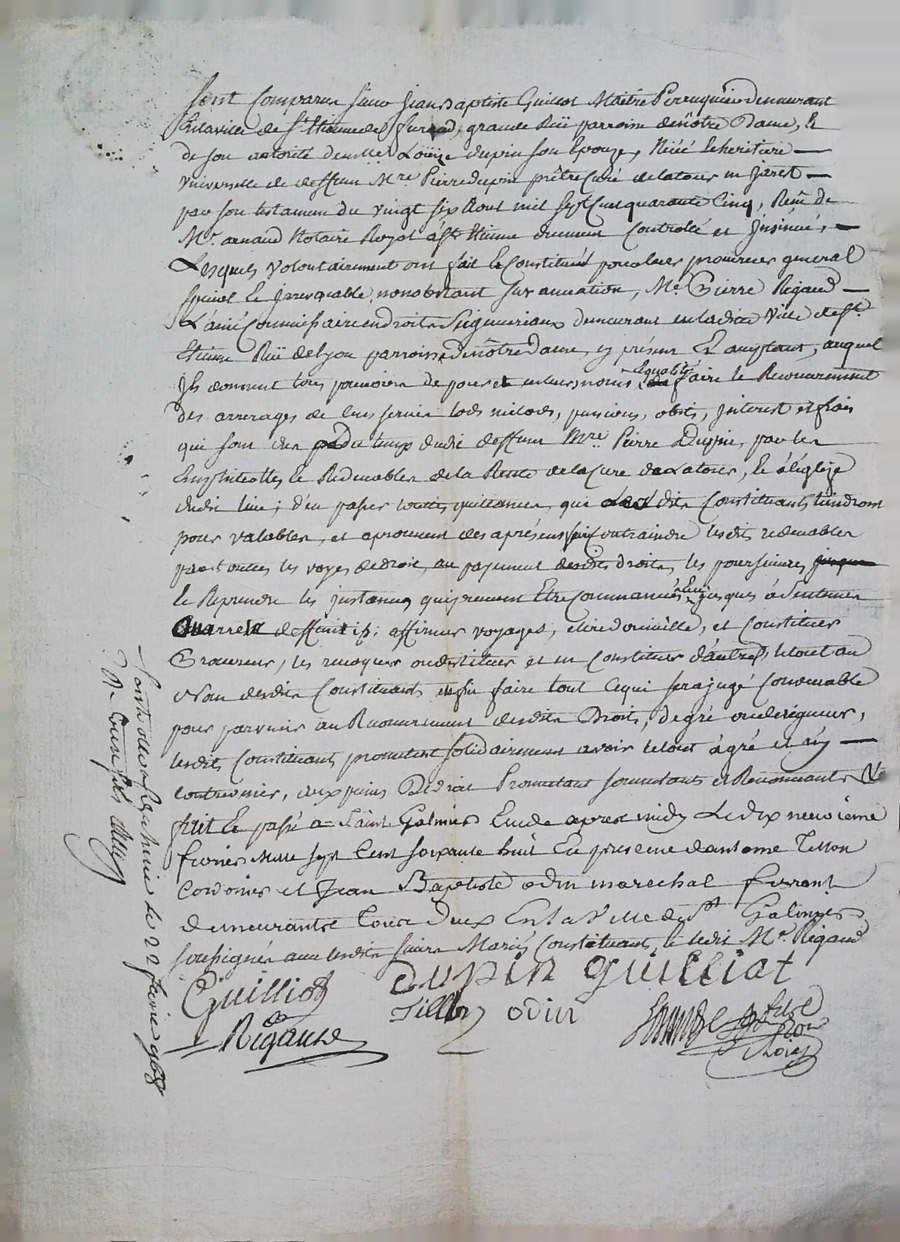 Sont Comparus Sieur Jean Baptiste Guilliot Maitre Perruquier demeurant
En la ville de St Etienne de furand, grande Rüe parroisse de nôtre Dame, &
de son autorité demlle Loüize dupin son Epouze, Niéce & heritiere
Universelle de deffunt Mre. Pierre dupin prêtre Curé de latour en Jarest
par son testament du vingt six Aout mil sept Cent quarante Cinq, Reçu
Me. arnaud Notaire Royal à St Etienne duement Controllé et Insinué,
Lesquels volontairement ont fait & Constitué pour leur procureur general
special & irrevoquable, nonobstant surannation, Me. Pierre Rigaud
L'ainé Commissaire en droits Seigneuriaux demeurant en ladite Ville de St.
Etienne Rüe de lyon parroisse de nôtre dame, cy présent & acceptant, auquel
Ils donnent tous pouvoirs de pour et en leurs noms & qualités faire le Recouvrement
des arrerages de cens servis lods milods, pensions, obits, interest et frais
qui sont dus du temps dudit deffunt Mre. Pierre Dupin, par les
Emphiteottes & Redevables de la Rente de la Cure de Latour, & de l'église
dudit lieu; d'en passer toutes quittances, que lesdits Constituants tiendront
pour valables, et aprouvent des aprésent, Contraindre lesdits redevables
par touttes les voyes de droit, au payement desdits droits, les poursuivre
& Reprendre les instances qui peuvent Etre Commancées jusques à Sentence
deffinitif: affirmer voyages, elire domicille, et Constituer
Procureur, les revoquer ou destituer et en Constituer d'autres, le tout au
Nom desdits Constituants enfin faire tout ce qui sera jugé Convenable
pour parvenir au Recouvrement desdits Droits, de gré ou de rigueur,
lesdits Constituants promettent solidairement avoir le tout à gré et n'y
Contrevenir, aux peines De droit Promettant soumettants et Renonceants
fait & passé a Saint Galmier Etude apres midy Le dix neuvieme
fevrier mille sept Cent soixante huit En presence d'antoine Tillon
Cordonier et Jean Baptiste odin marechal ferrant
demeurants Tous Deux En la Ville de St Galmier
soussignés avec lesdits sieurs Mariés Constituants, & ledit Me. Rigaud
Guilliot dupin guilliat
Tillon odin
Rigaud
Controllé à St Galmier le 22 fevrier 1768